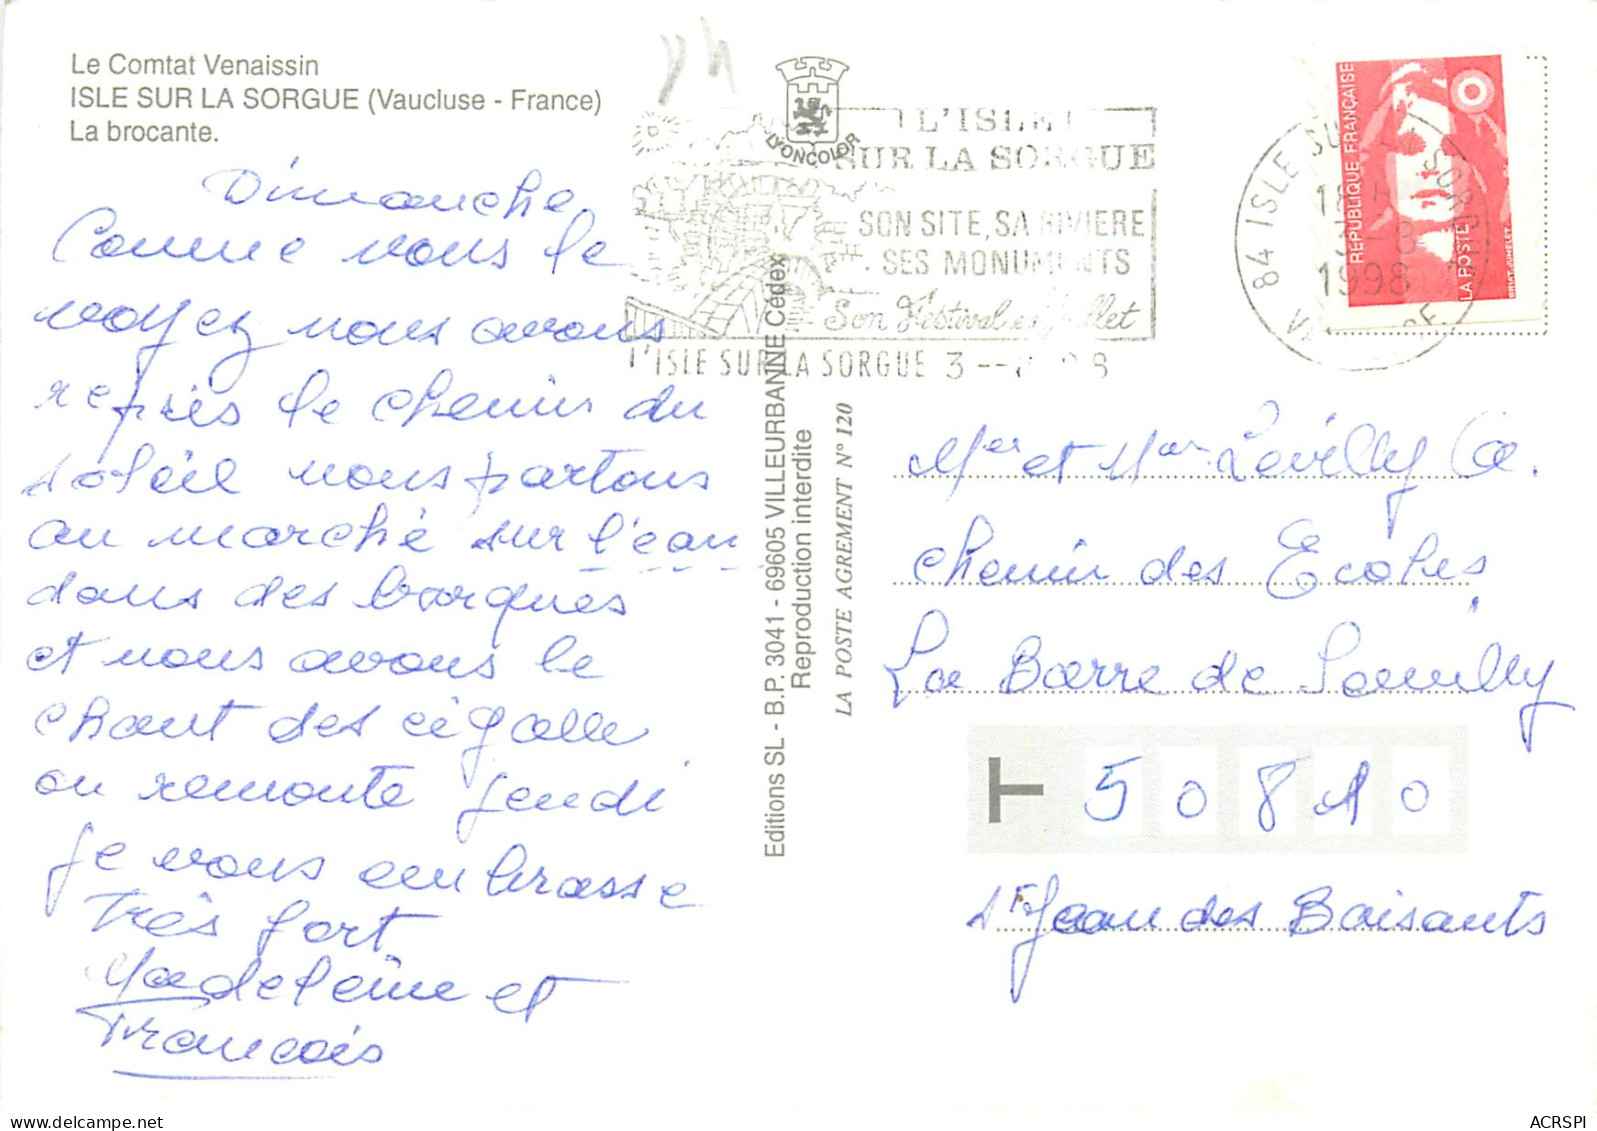 Le Comtat Venaissin
ISLE SUR LA SORGUE (Vaucluse - France)
La brocante.
Dimanche
Comme vous le
voyez nous avons
repris le chemin du
soleil nous partons
au marché sur l'eau
dans des barques
et nous avons le
chant des cigalle
on remonte jeudi
je vous embrasse
Très fort
Madeleine et
Francois
LYONCOLOR
L'ISLE
SUR LA SORGUE
SON SITE, SA RIVIERE
SES MONUMENTS
Son Festival en Juillet
L'ISLE SUR LA SORGUE 3
84 ISLE SUR LA SORGUE
18
3-8
1998
VAUCLUSE
REPUBLIQUE FRANÇAISE
LA POSTE
Editions SL - B.P. 3041 - 69605 VILLEURBANNE Cédex
Reproduction interdite
LA POSTE AGREMENT N° 120
Mer et Mar Levilly
chemin des Ecoles
La Barre de Semilly
50810
St Jean des Baisants
ACRSPI